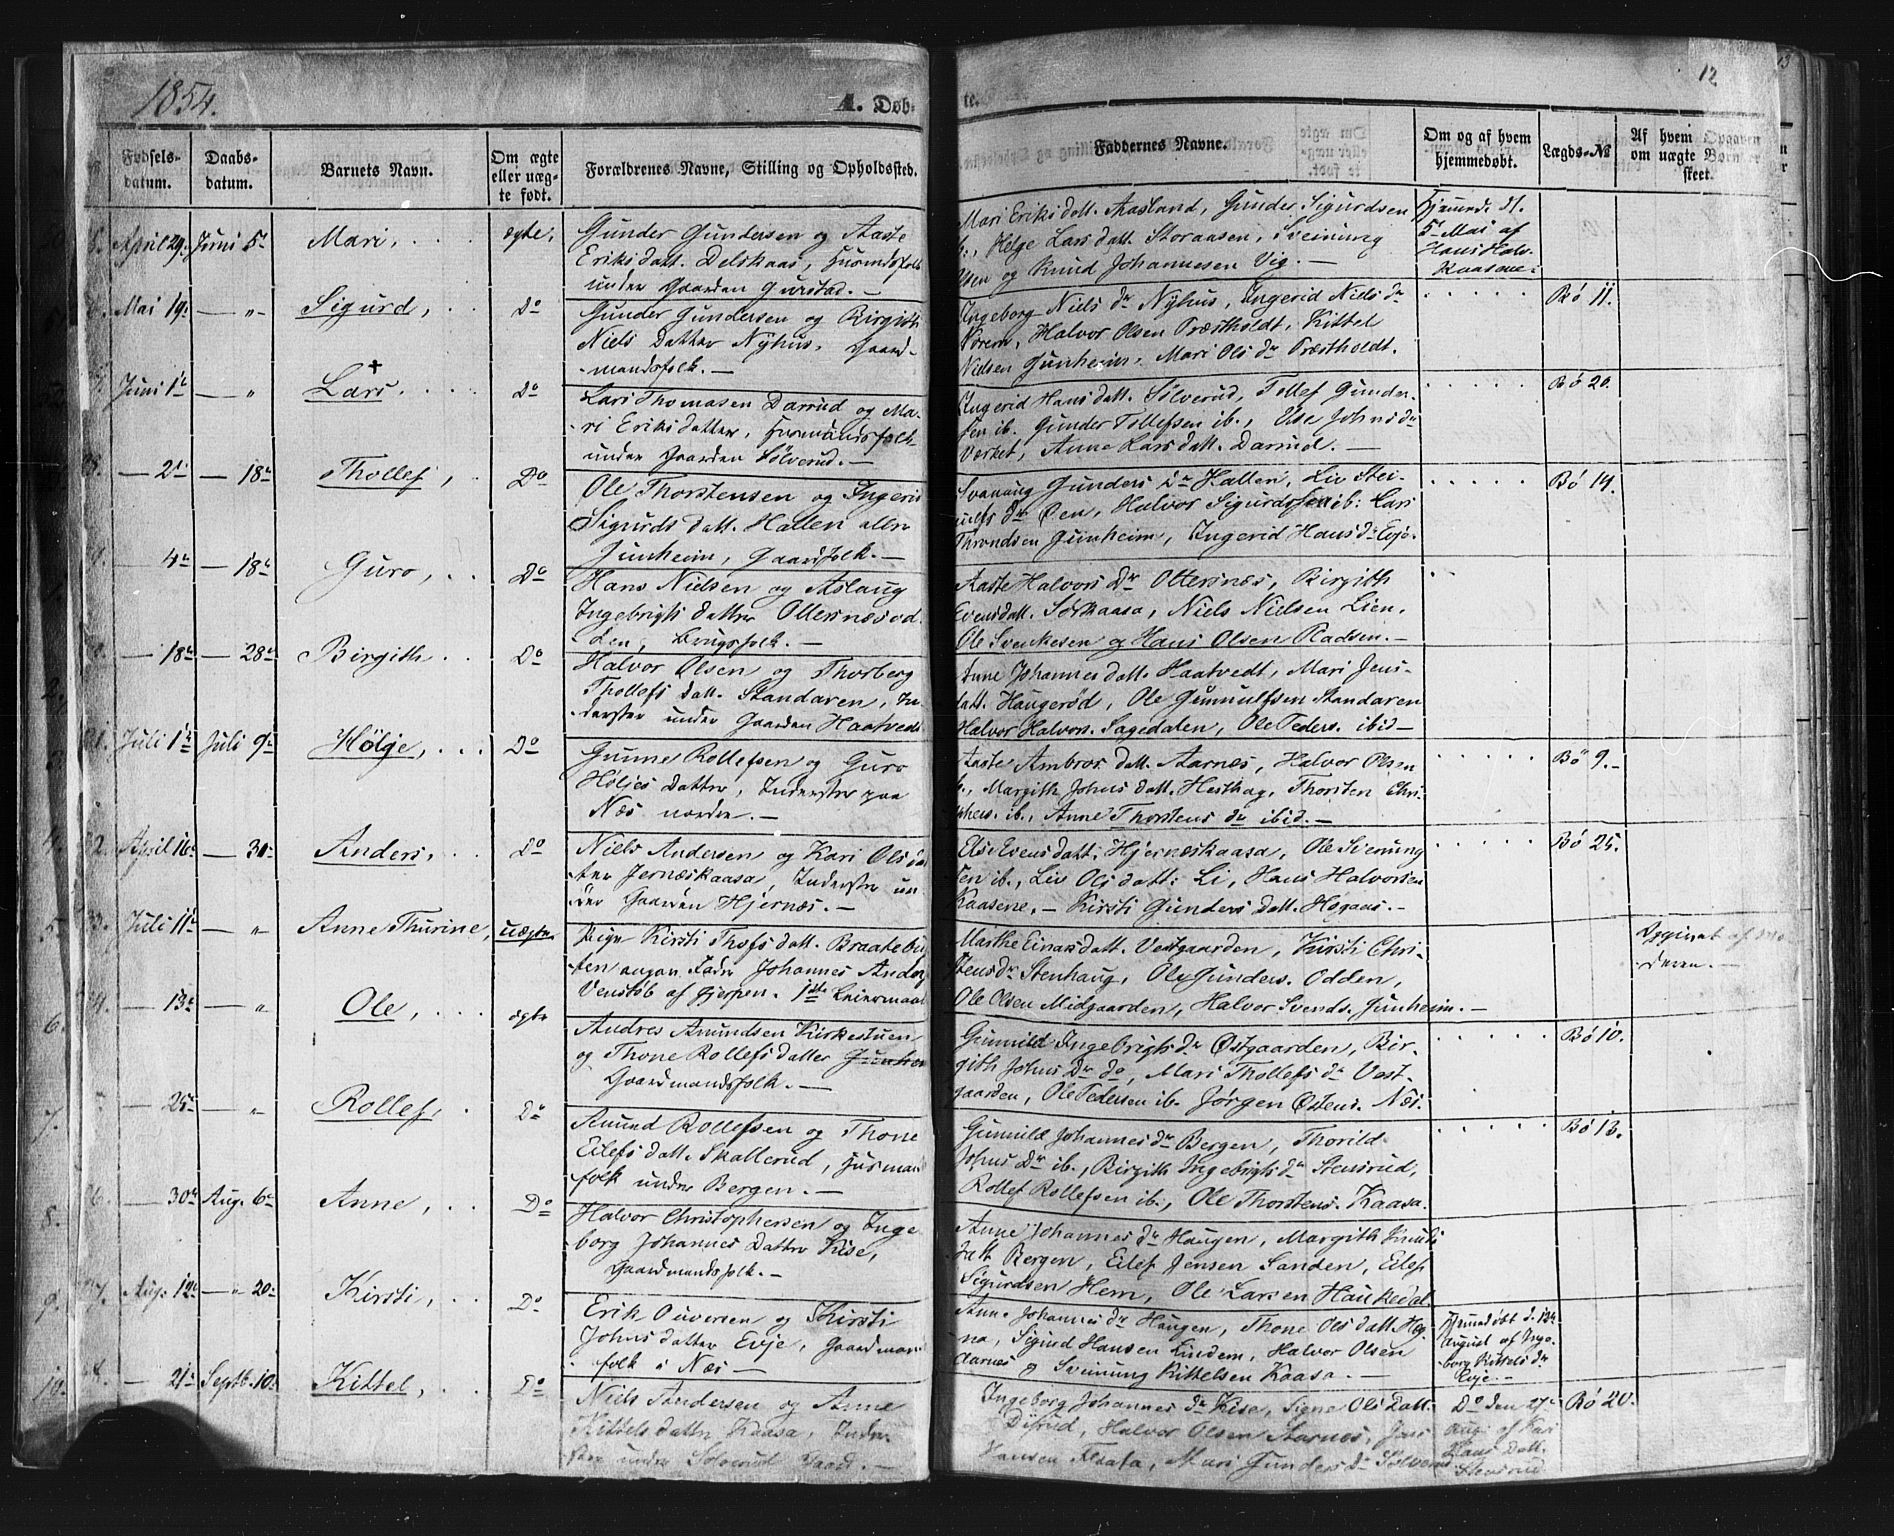 1854.
A. Døb-
Fødsels-
datum.
Daabs-
datum.
Barnets Navn.
Om ægte
eller uæg-
te født.
Forældrenes Navne, Stilling og Opholdssted.
April 29. Juni 5. Mari, ægte,
Gunder Gundersen og Aaste
Eriksdatt. Delskaas, Husmdsfolk
under Gaarden Gurstad. —
Mai 19. — " Sigurd, Do
Gunder Gundersen og Birgith
Niels Datter Nyhus, Gaard-
mandsfolk. —
Juni 1 — " Lars, Do
Lars Thomasen Darrud og Ma-
ri Eriksdatter, Husmandsfolk
under Gaarden Sølverud. —
— 2 — 18 Thollef, Do
Ole Thorstensen og Ingerid
Sigurds datt. Hallen eller
Gunheim, Gaardfolk. —
— 4 — 18 Guro, Do
Hans Nielsen og Aslaug
Ingebrigts datter Otternæs ved
Brugsfolk. —
— 18 — 28 Birgith Do
Halvor Olsen og Thorberg
Thollefs datt. Standaren, In-
derster under Gaarden Haatvedt
Juli 1 Juli 9 Hølge, Do
Gunne Rollefsen og Guro
Høljes Datter, Inderster paa
Næs nordre. —
April 16 — 30 Anders, Do
Niels Andersen og Kari Ols dat
ter Jernæskaasa, Inderster un
der Gaarden Hjernæs. —
Juli 11 — " Anne Thurine, uægte
Pige Kirsti Thofs datt. Braatebu
ten angav Fader Johannes Anders
Venstøb af Gjerpen. 1ste Leiermaal
— 13 — " Ole, ægte
Andres Amundsen Kirkestuen
og Thone Rollefsdatter
Gaardmandsfolk. —
— 25 — " Rollef, Do
Amund Rollefsen og Thone
Eilefs datt. Skallerud, Husmand
folk under Bergen. —
— 30 Aug. 6 Anne, Do
Halvor Christophersen og Inge
borg Johannes Datter Kise,
Gaardmandsfolk. —
Aug. 12 — " 20 Kirsti, Do
Erik Ouversen og Kirsti
Johns datter Evje, Gaardman
folk i Næs —
— 21 Septb. 10 Kittel, Do
Niels Andersen og Anne
Kittels datter Kaasa, Inder-
ster under Sølverud Gaard. —
12
te.
Faddernes Navne.
Om og af hvem
hjemmedøbt.
Lægds-No
Af hvem Opgaven
om uægte Børn er
skeet.
Mari Eriks datt. Aasland, Gunder Sigurdsen
ib., Helge Lars datt. Storaasen, Sveinung
Olsen og Knud Johannesen Vig. —
5 Mai af
Hans Halv.
Kaasene.
Ingeborg Niels dr Nyhus, Ingerid Niels dr
Halvor Olsen Præstholdt, Kittel
Nielsen Gunheim, Mari Ols dr Præstholdt.
Bø 11.
Ingerid Hans datt. Sølverud, Tollef Gunder-
sen ib. Gunder Tollefsen ib., Else Johns dr
Verket, Anne Lars datt. Darrud. —
Bø 20.
Svanaug Gunders dr Hallen, Liv Stei-
nulfs dr Øen, Halvor Sigurdssen ib: Lars
Throndsen Gunheim, Ingerid Hans dr Evje.
Bø 14.
Aaste Halvors Dr Otternæs, Birgith
Evensdatt. Sørkaasa, Niels Nielsen Lien,
Ole Svenkesen og Hans Olsen Pladsen. —
Anne Johannes datt. Haatvedt, Mari Jens-
datt. Haugerød, Ole Gunnulfsen Standaren
Halvor Halvors. Sagedalen, Ole Peders. ibid —
Aaste Ambros datt. Aarnæs, Halvor Olsen
ib., Margith Johns datt. Hesthag, Thorsten Chri-
stophers. ib., Anne Thorstens dr ibid. —
Bø 9. —
Else Evens datt. Hjernæskaasa, Ole Svenung
sen ib., Liv Ols datt: Li, Hans Halvorsen
Kaasene, — Kirsti Gunders datt. Hogaas. —
Bø 25.
Marthe Einarsdatt. Vestgaarden, Kirsti Chri-
stens dr Stenhaug, Ole Gunders. Odden,
Ole Olsen Midgaarden, Halvor Svends. Gunheim. —
Opgivet af Mo-
deren. —
Gunnild Ingebrigts dr Østgaarden, Bir-
gith Johns Dr do, Mari Thollefs dr Vest-
gaarden, Ole Pedersen ib. Jørgen Østens. Næs.
Bø 10.
Gunnild Johannes dr Bergen, Thorild
Johns Dr ib., Birgith Ingebrigts dr Stensrud,
Rollef Rollefsen ib., Ole Thorstens. Kaasa.
Bø 13.
Anne Johannes dr Haugen, Margith Knuds
datt Bergen, Eilef Jensen Sanden, Eilef
Sigurdsen Hem, Ole Larsen Haukedal.
Anne Johannes dr Haugen, Thone Ols datt.
Sigurd Hansen Lindem, Halvor Olsen
Aarnæs og Sveinung Kittelsen Kaasa. —
Hjemmedøbt d. 13
August af Inge-
borg Kittels dr
Evje. —
Ingeborg Johannes dr Kise, Signe Ols Datt.
Dyrud, Halvor Olsen Aarnæs, Jens
Hansen Fldata, Mari Gunders dr Sølverud
Do den 27
Aug. af Kari
Hans datt.
Stensrud
Bø 20.